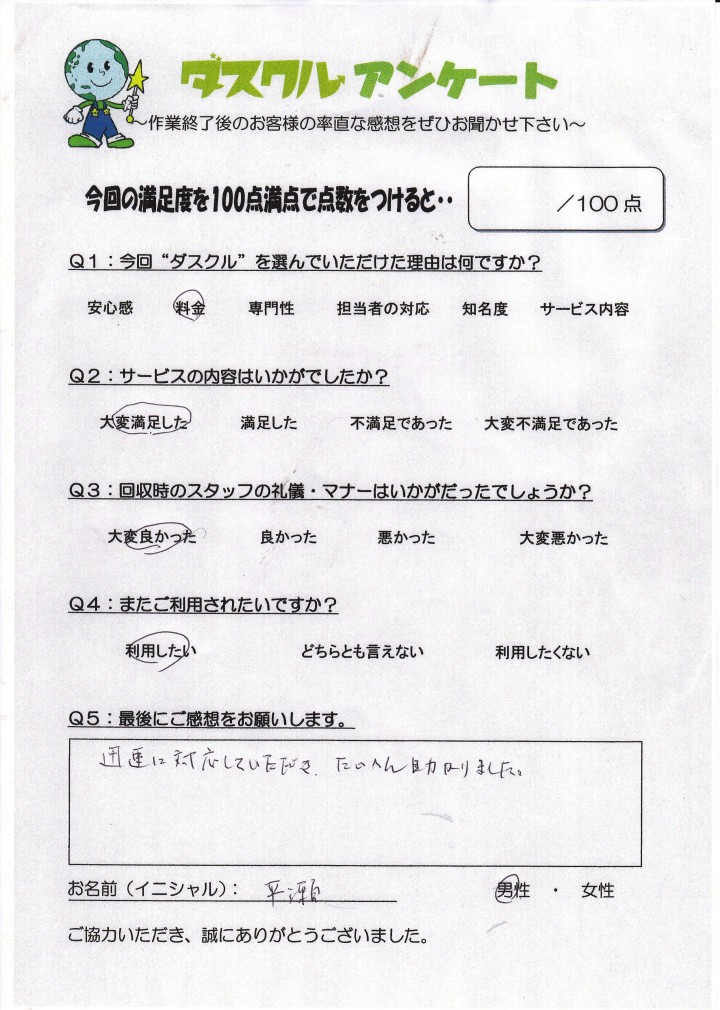 ダスクル アンケート
～作業終了後のお客様の率直な感想をぜひお聞かせ下さい～
今回の満足度を100点満点で点数をつけると・・
／100 点
Q1：今回“ダスクル”を選んでいただけた理由は何ですか？
安心感 料金 専門性 担当者の対応 知名度 サービス内容
Q2：サービスの内容はいかがでしたか？
大変満足した 満足した 不満足であった 大変不満足であった
Q3：回収時のスタッフの礼儀・マナーはいかがだったでしょうか？
大変良かった 良かった 悪かった 大変悪かった
Q4：またご利用されたいですか？
利用したい どちらとも言えない 利用したくない
Q5：最後にご感想をお願いします。
迅速に対応していただき、たいへん助かりました。
お名前（イニシャル）： 平瀬 男性 ・ 女性
ご協力いただき、誠にありがとうございました。